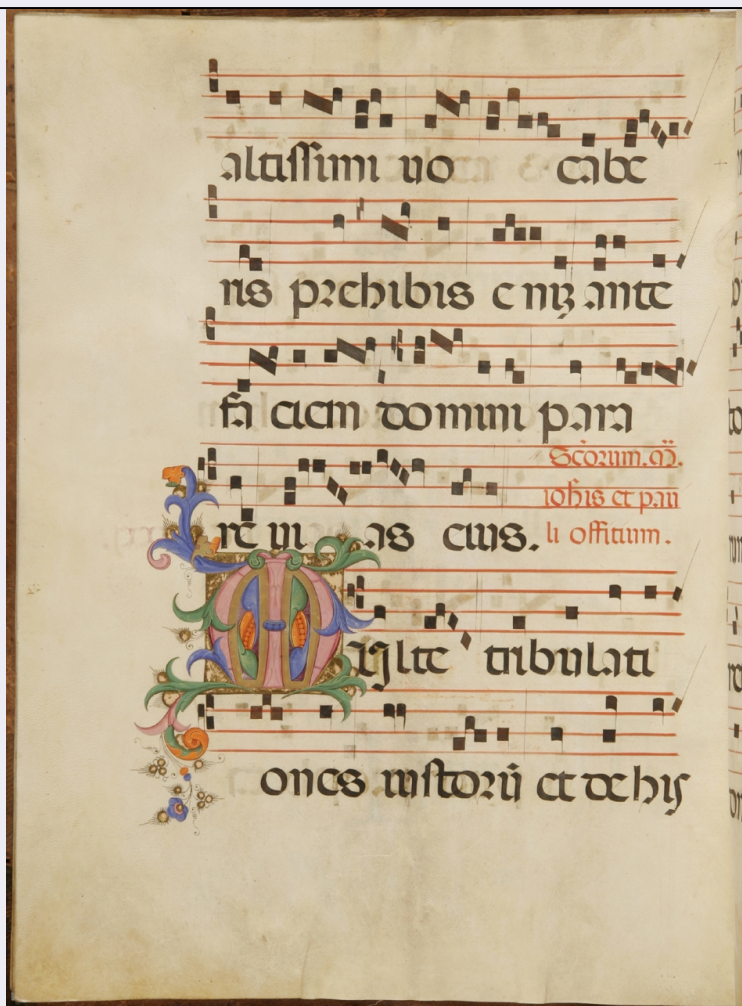 altissimi uo cabe
ris prehibis enīȝ ante
fa ciem domini para
Scōrum. M̄.
ioħis et pau
re ui as eius. li offitium.
Multe tribulati
ones iustorū et de hiis